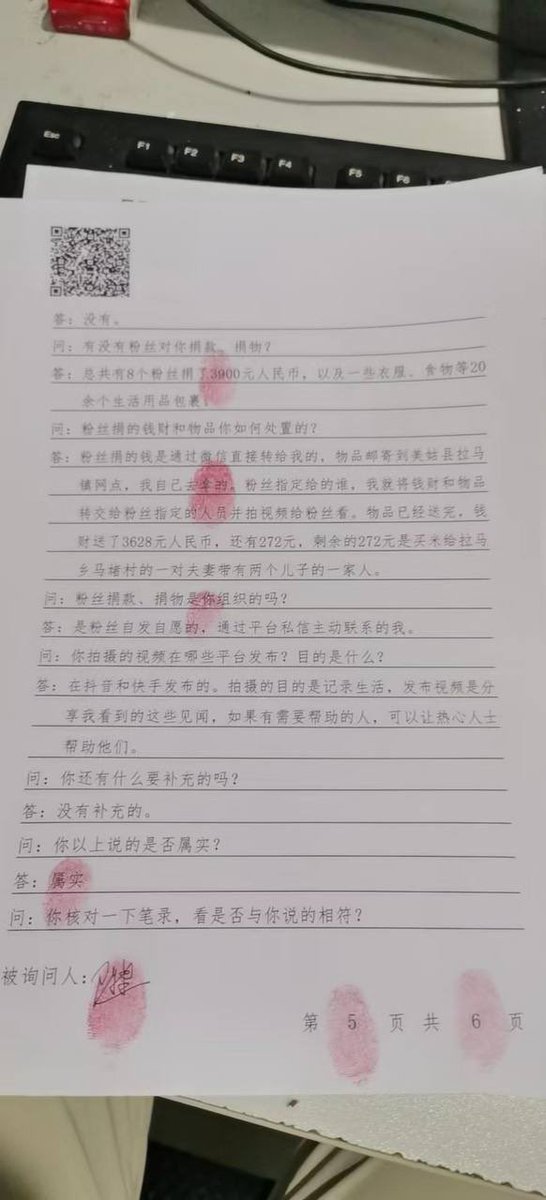 Esc F1 F2 F3 F4 F5 F6
答：没有。
问：有没有粉丝对你捐款、捐物？
答：总共有8个粉丝捐了3900元人民币，以及一些衣服、食物等20
余个生活用品包裹。
问：粉丝捐的钱财和物品你如何处置的？
答：粉丝捐的钱是通过微信直接转给我的，物品邮寄到美姑县拉马
镇网点，我自己去拿的，粉丝指定给的谁，我就将钱财和物品
转交给粉丝指定的人员并拍视频给粉丝看。物品已经送完，钱
财送了3628元人民币，还有272元，剩余的272元是买米给拉马
乡马堵村的一对夫妻带有两个儿子的一家人。
问：粉丝捐款、捐物是你组织的吗？
答：是粉丝自发自愿的，通过平台私信主动联系的我。
问：你拍摄的视频在哪些平台发布？目的是什么？
答：在抖音和快手发布的。拍摄的目的是记录生活，发布视频是分
享我看到的这些见闻，如果有需要帮助的人，可以让热心人士
帮助他们。
问：你还有什么要补充的吗？
答：没有补充的。
问：你以上说的是否属实？
答：属实
问：你核对一下笔录，看是否与你说的相符？
被询问人：
第 5 页 共 6 页